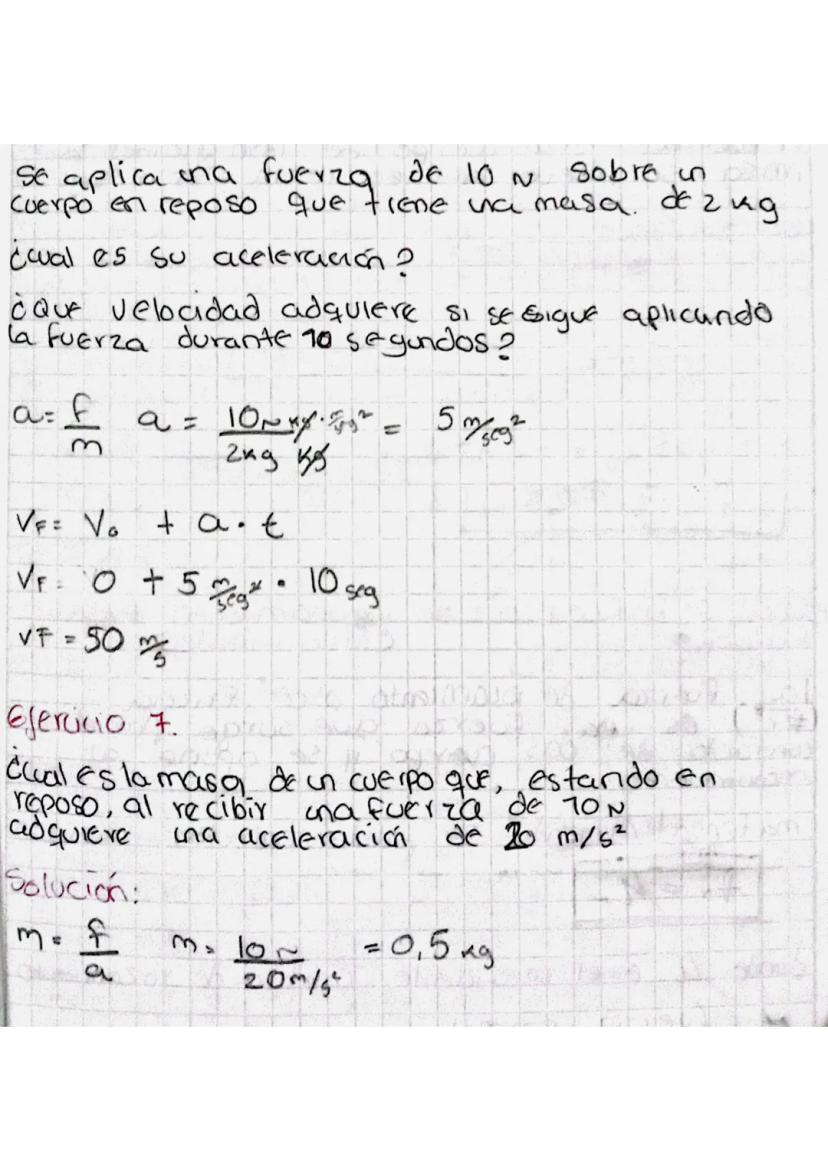 Se aplica una fuerza de 10 N sobre un
cuerpo en reposo que tiene una masa. de 2 kg
¿cual es su aceleración?
¿Que velocidad adquiere si se sigue aplicando
la fuerza durante 10 segundos?
a = f/m a = 10N kg · m/seg² / 2kg kg = 5 m/seg²
VF = Vo + a · t
VF = 0 + 5 m/seg² · 10 seg
VF = 50 m/s
Ejercicio 7.
¿Cual es la masa de un cuerpo que, estando en
reposo, al recibir una fuerza de 10 N
adquiere una aceleración de 20 m/s²
Solución:
m = f/a m = 10 N / 20 m/s² = 0,5 kg